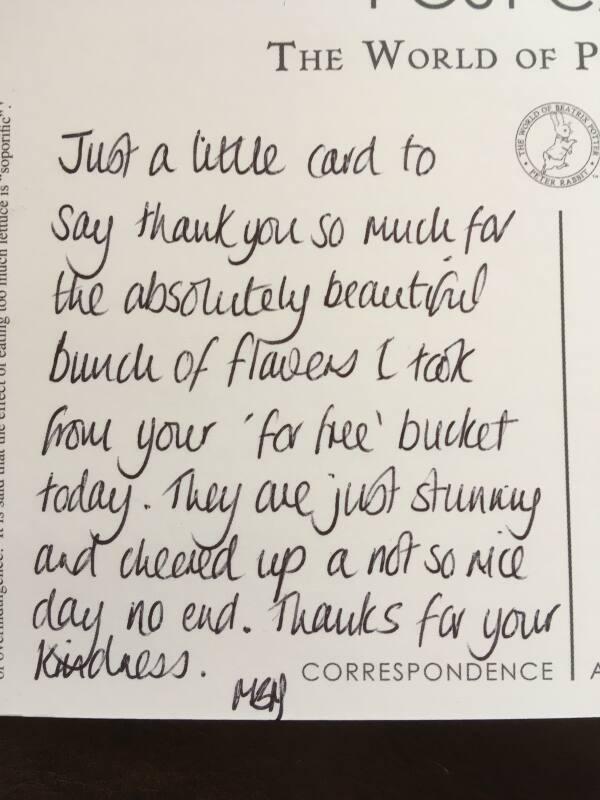 POST C
THE WORLD OF P
THE WORLD OF BEATRIX POTTER
PETER RABBIT
™
Just a little card to
say thank you so much for
the absolutely beautiful
bunch of flowers I took
from your 'for free' bucket
today. They are just stunning
and cheered up a not so nice
day no end. Thanks for your
kindness.
CORRESPONDENCE
A
of overindulgence. It is said that the effect of eating too much lettuce is "soporific".